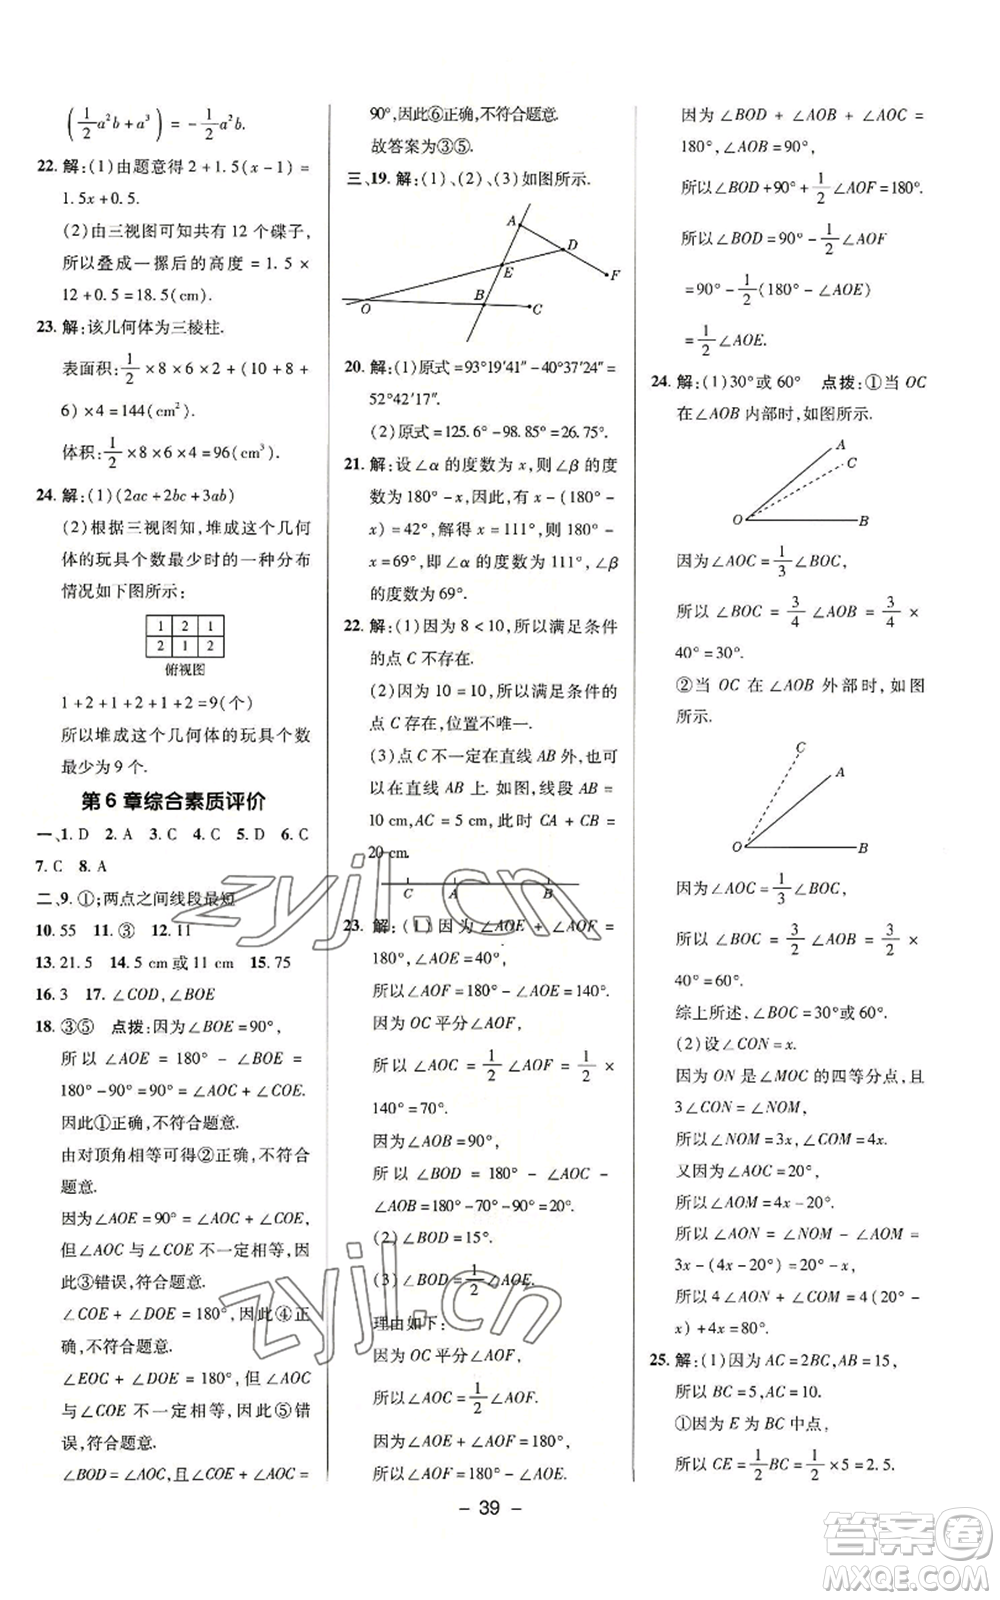 (1/2 a²b + a³) = -1/2 a²b.
22. 解:(1)由题意得 2 + 1.5(x - 1) =
1.5x + 0.5.
(2)由三视图可知共有 12 个碟子,
所以叠成一摞后的高度 = 1.5 ×
12 + 0.5 = 18.5(cm).
23. 解:该几何体为三棱柱.
表面积: 1/2 × 8 × 6 × 2 + (10 + 8 +
6) × 4 = 144(cm²).
体积: 1/2 × 8 × 6 × 4 = 96(cm³).
24. 解:(1)(2ac + 2bc + 3ab)
(2)根据三视图知,堆成这个几何
体的玩具个数最少时的一种分布
情况如下图所示:
1 2 1
2 1 2
俯视图
1 + 2 + 1 + 2 + 1 + 2 = 9(个)
所以堆成这个几何体的玩具个数
最少为 9 个.
第 6 章综合素质评价
一、1. D 2. A 3. C 4. C 5. D 6. C
7. C 8. A
二、9. ①;两点之间线段最短
10. 55 11. ③ 12. 11
13. 21.5 14. 5 cm 或 11 cm 15. 75
16. 3 17. ∠COD, ∠BOE
18. ③⑤ 点拨:因为∠BOE = 90°,
所以 ∠AOE = 180° - ∠BOE =
180° - 90° = 90° = ∠BOE.
因此①正确,不符合题意.
由对顶角相等可得②正确,不符合
题意.
因为∠AOE = 90° = ∠AOC + ∠COE,
但∠AOC 与∠COE 不一定相等,因
此③错误,符合题意.
∠COE + ∠DOE = 180°, 因此④正
确,不符合题意.
∠EOC + ∠DOE = 180°, 但∠AOC
与∠COE 不一定相等,因此⑤错
误,符合题意.
∠BOD = ∠AOC,且∠COE + ∠AOC =
90°,因此⑥正确,不符合题意.
故答案为③⑤.
三、19. 解:(1)、(2)、(3)如图所示.
A
D
E
F
B
O
C
20. 解:(1)原式 = 93°19′41″ - 40°37′24″ =
52°42′17″.
(2)原式 = 125.6° - 98.85° = 26.75°.
21. 解:设∠α 的度数为 x,则∠β 的度
数为 180° - x,因此,有 x - (180° -
x) = 42°,解得 x = 111°,则 180° -
x = 69°,即∠α 的度数为 111°,∠β
的度数为 69°.
22. 解:(1)因为 8 < 10,所以满足条件
的点 C 不存在.
(2)因为 10 = 10,所以满足条件的
点 C 存在,位置不唯一.
(3)点 C 不一定在直线 AB 外,也
可在直线 AB 上. 如图,线段 AB =
10 cm,AC = 5 cm,此时 CA + CB =
20 cm.
C A B
23. 解:(1)因为∠AOE + ∠AOF =
180°, ∠AOE = 40°,
所以∠AOF = 180° - ∠AOE = 140°.
因为 OC 平分∠AOF,
所以∠AOC = 1/2 ∠AOF = 1/2 ×
140° = 70°.
因为∠AOB = 90°,
所以 ∠BOD = 180° - ∠AOC -
∠AOB = 180° - 70° - 90° = 20°.
(2)∠BOD = 15°.
(3)∠BOD = 1/2 ∠AOE.
理由如下:
因为 OC 平分∠AOF,
所以∠AOC = 1/2 ∠AOF.
因为∠AOE + ∠AOF = 180°,
所以∠AOF = 180° - ∠AOE.
因为 ∠BOD + ∠AOB + ∠AOC =
180°, ∠AOB = 90°,
所以∠BOD + 90° + 1/2 ∠AOF = 180°.
所以∠BOD = 90° - 1/2 ∠AOF
= 90° - 1/2 (180° - ∠AOE)
= 1/2 ∠AOE.
24. 解:(1)30°或 60° 点拨:①当 OC
在∠AOB 内部时,如图所示.
A
C
O B
因为∠AOC = 1/3 ∠BOC,
所以 ∠BOC = 3/4 ∠AOB = 3/4 ×
40° = 30°.
②当 OC 在∠AOB 外部时,如图
所示.
C
A
O B
因为∠AOC = 1/3 ∠BOC,
所以 ∠BOC = 3/2 ∠AOB = 3/2 ×
40° = 60°.
综上所述,∠BOC = 30°或 60°.
(2)设∠CON = x.
因为 ON 是∠MOC 的四等分点,且
3∠CON = ∠NOM,
所以∠NOM = 3x,∠MOC = 4x.
又因为∠AOC = 20°,
所以∠AOM = 4x - 20°.
所以 ∠AON = ∠NOM - ∠AOM =
3x - (4x - 20°) = 20° - x.
所以 4∠AON + ∠COM = 4(20° -
x) + 4x = 80°.
25. 解:(1)因为 AC = 2BC,AB = 15,
所以 BC = 5,AC = 10.
①因为 E 为 BC 中点,
所以 CE = 1/2 BC = 1/2 × 5 = 2.5.
- 39 -
zyjl.cn
zyjl.cn
答案圈
MXQE.COM